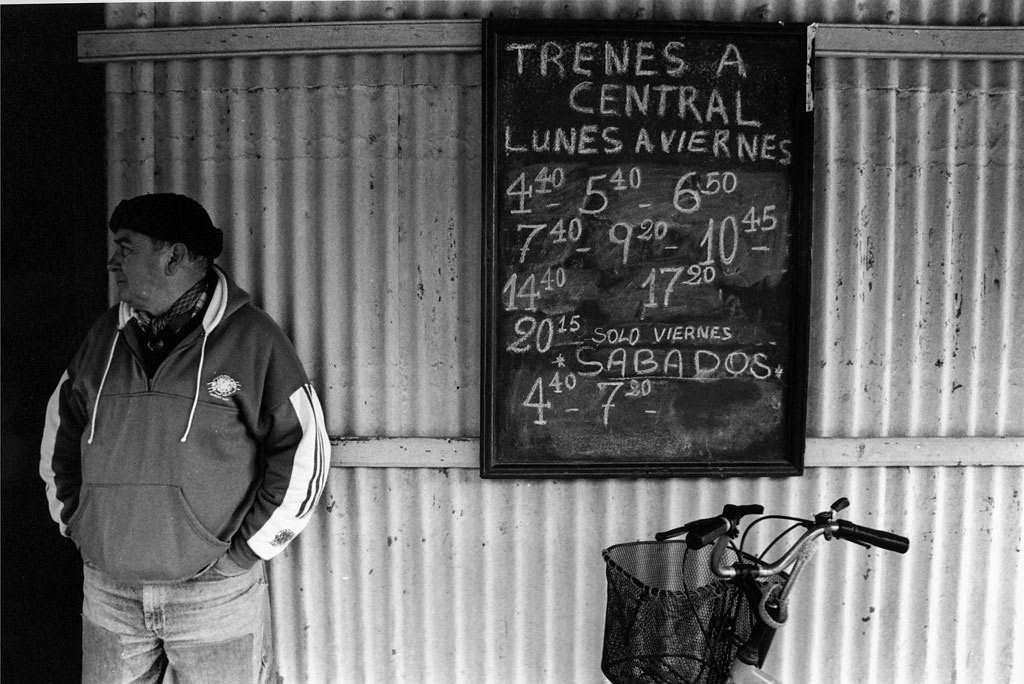 TRENES A
CENTRAL
LUNES A VIERNES
4 40 - 5 40 - 6 50
7 40 - 9 20 - 10 45 -
14 40 17 20
20 15 SOLO VIERNES
* SABADOS *
4 40 - 7 20 -